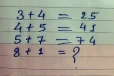 3+4 = 25
4+5 = 41
5+7 = 74
8+1 = ?